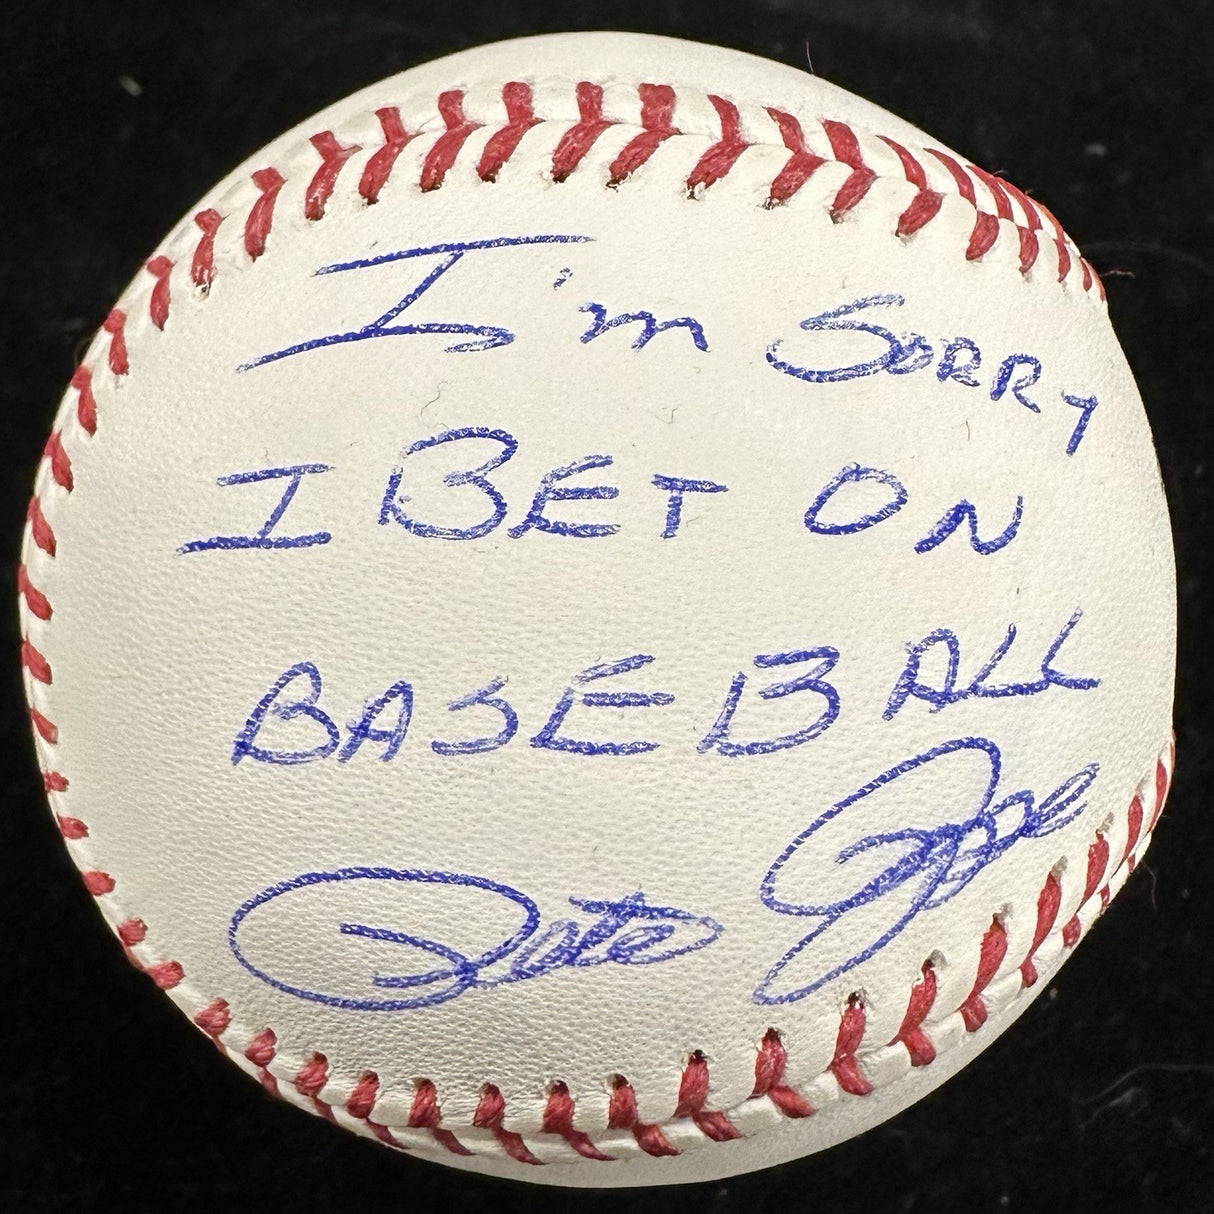 I'm SORRY
I BET ON
BASEBALL
Pete Rose